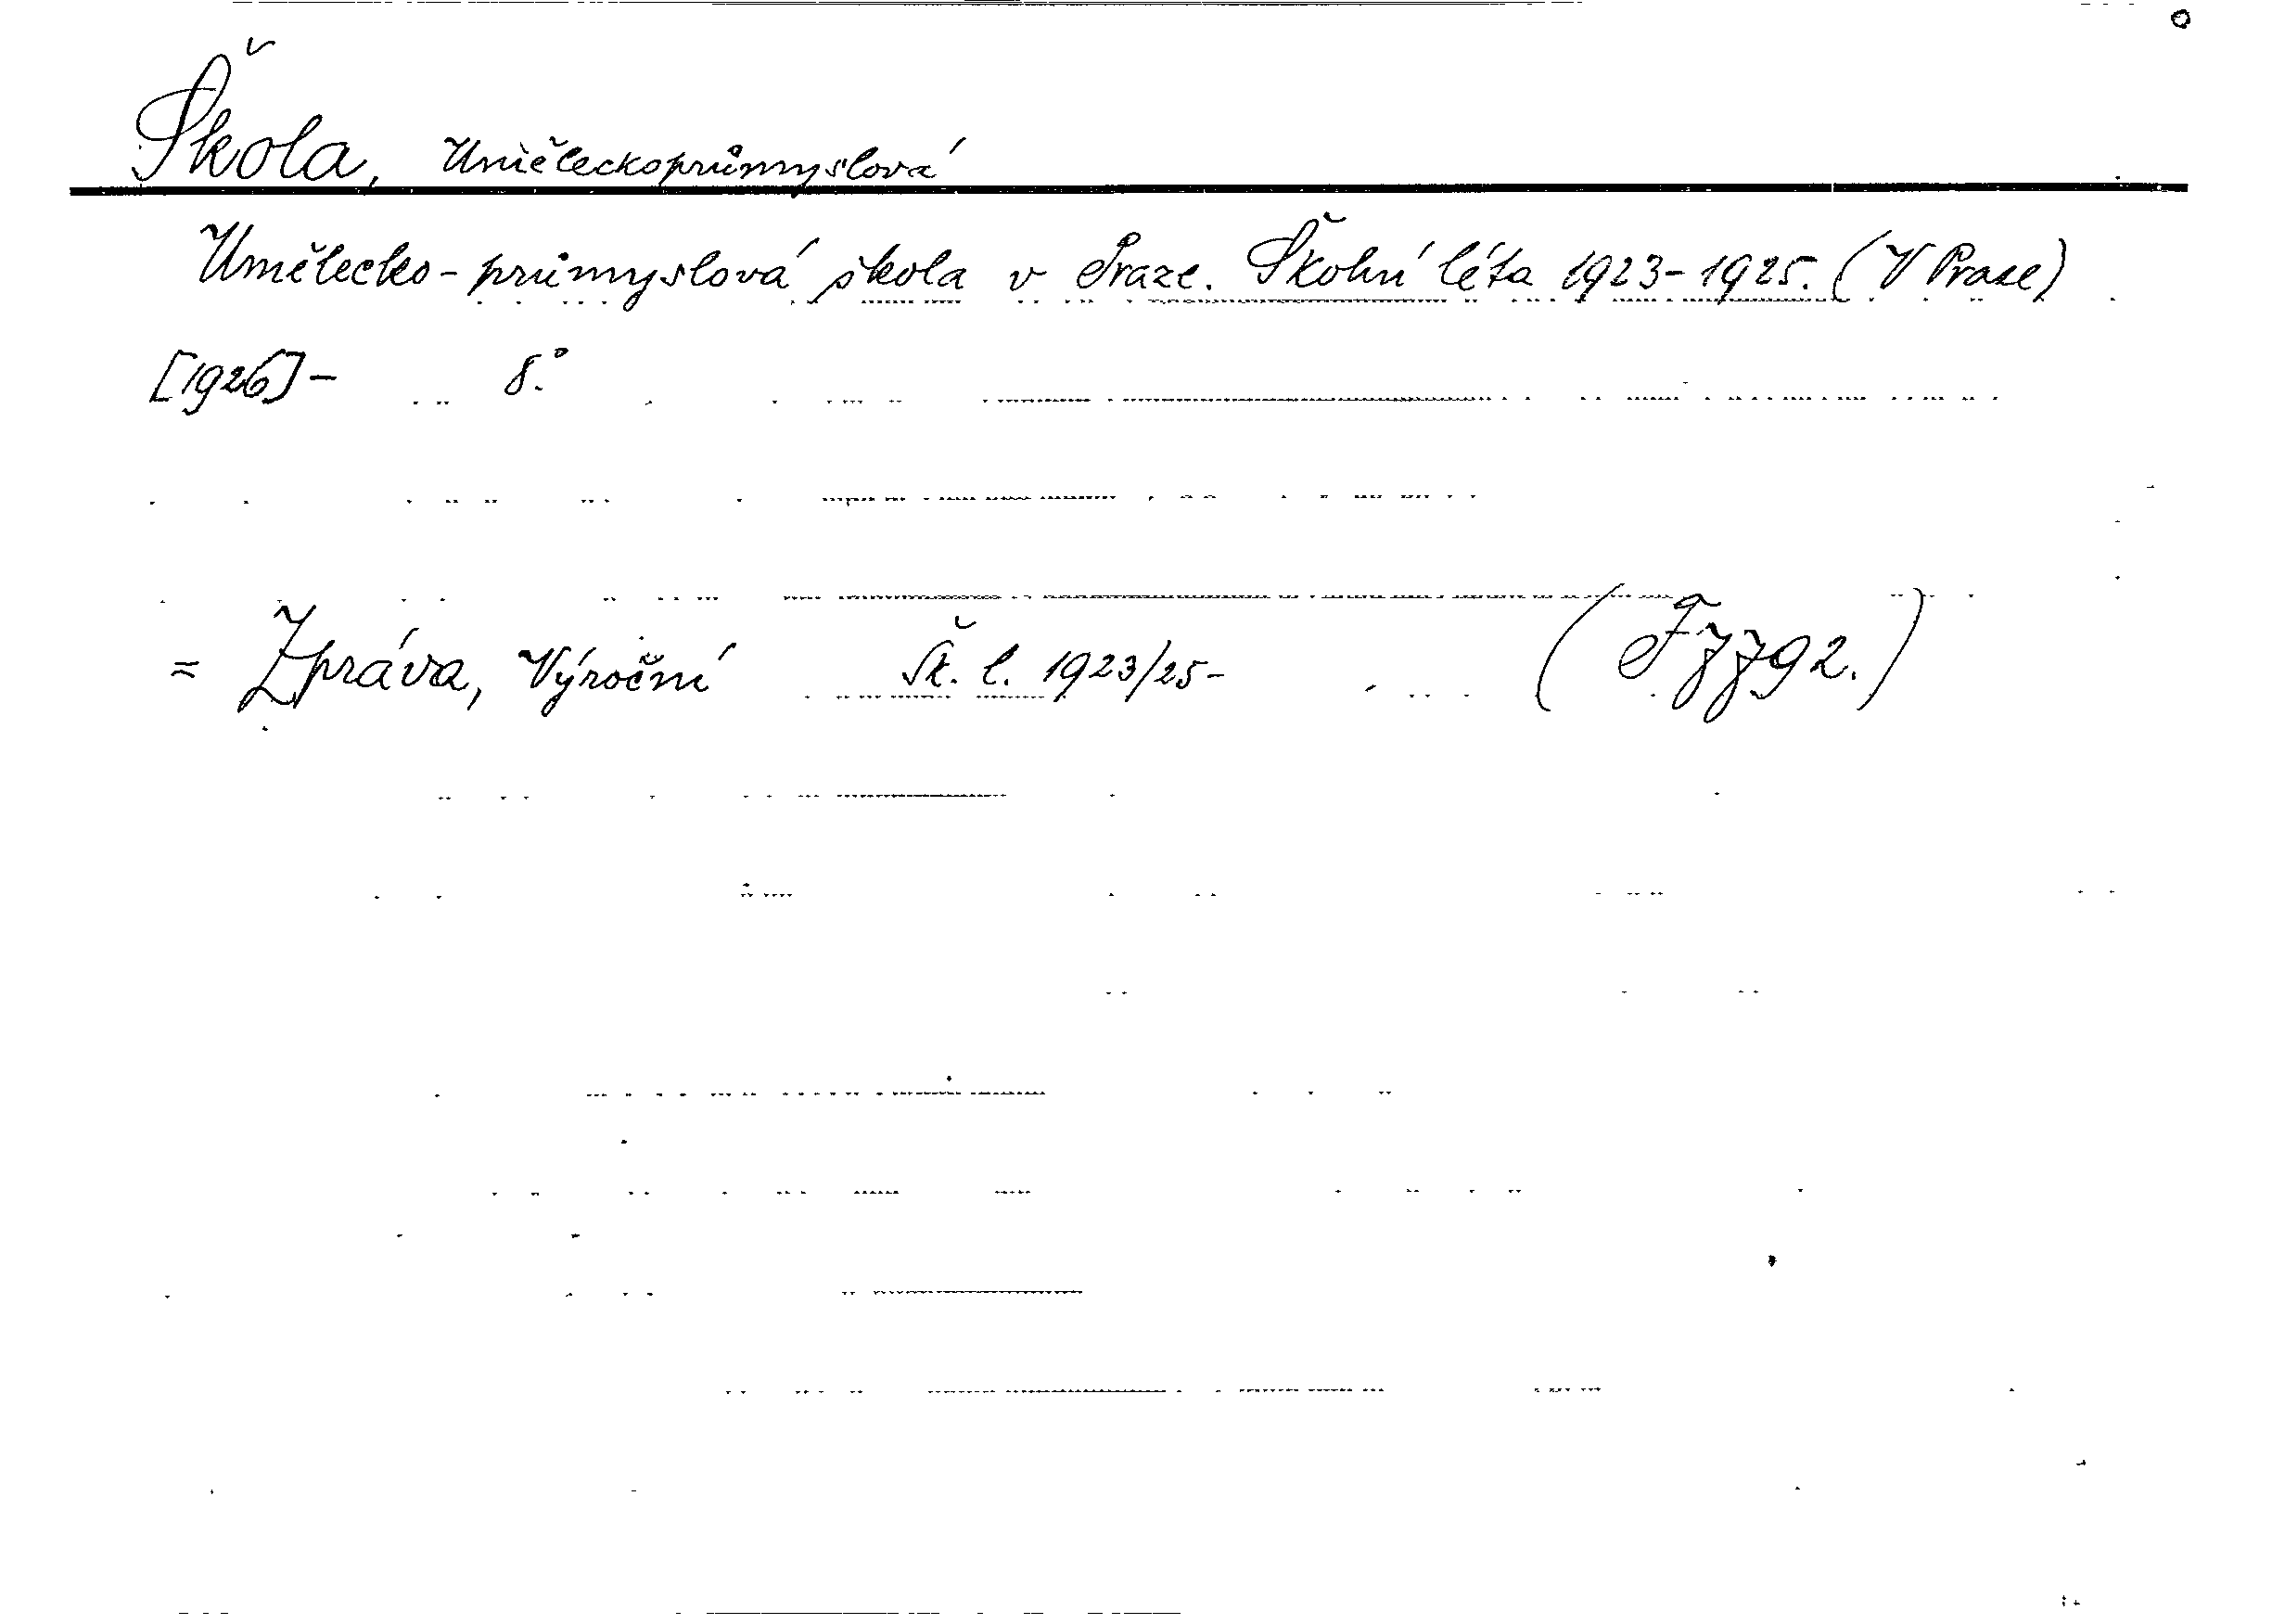 Škola, Uměleckoprůmyslová
Umělecko-průmyslová škola v Praze. Školní léta 1923-1925. (V Praze)
[1926]- 8.°
= Zpráva, Výroční Šk. l. 1923/25- (F 7792.)